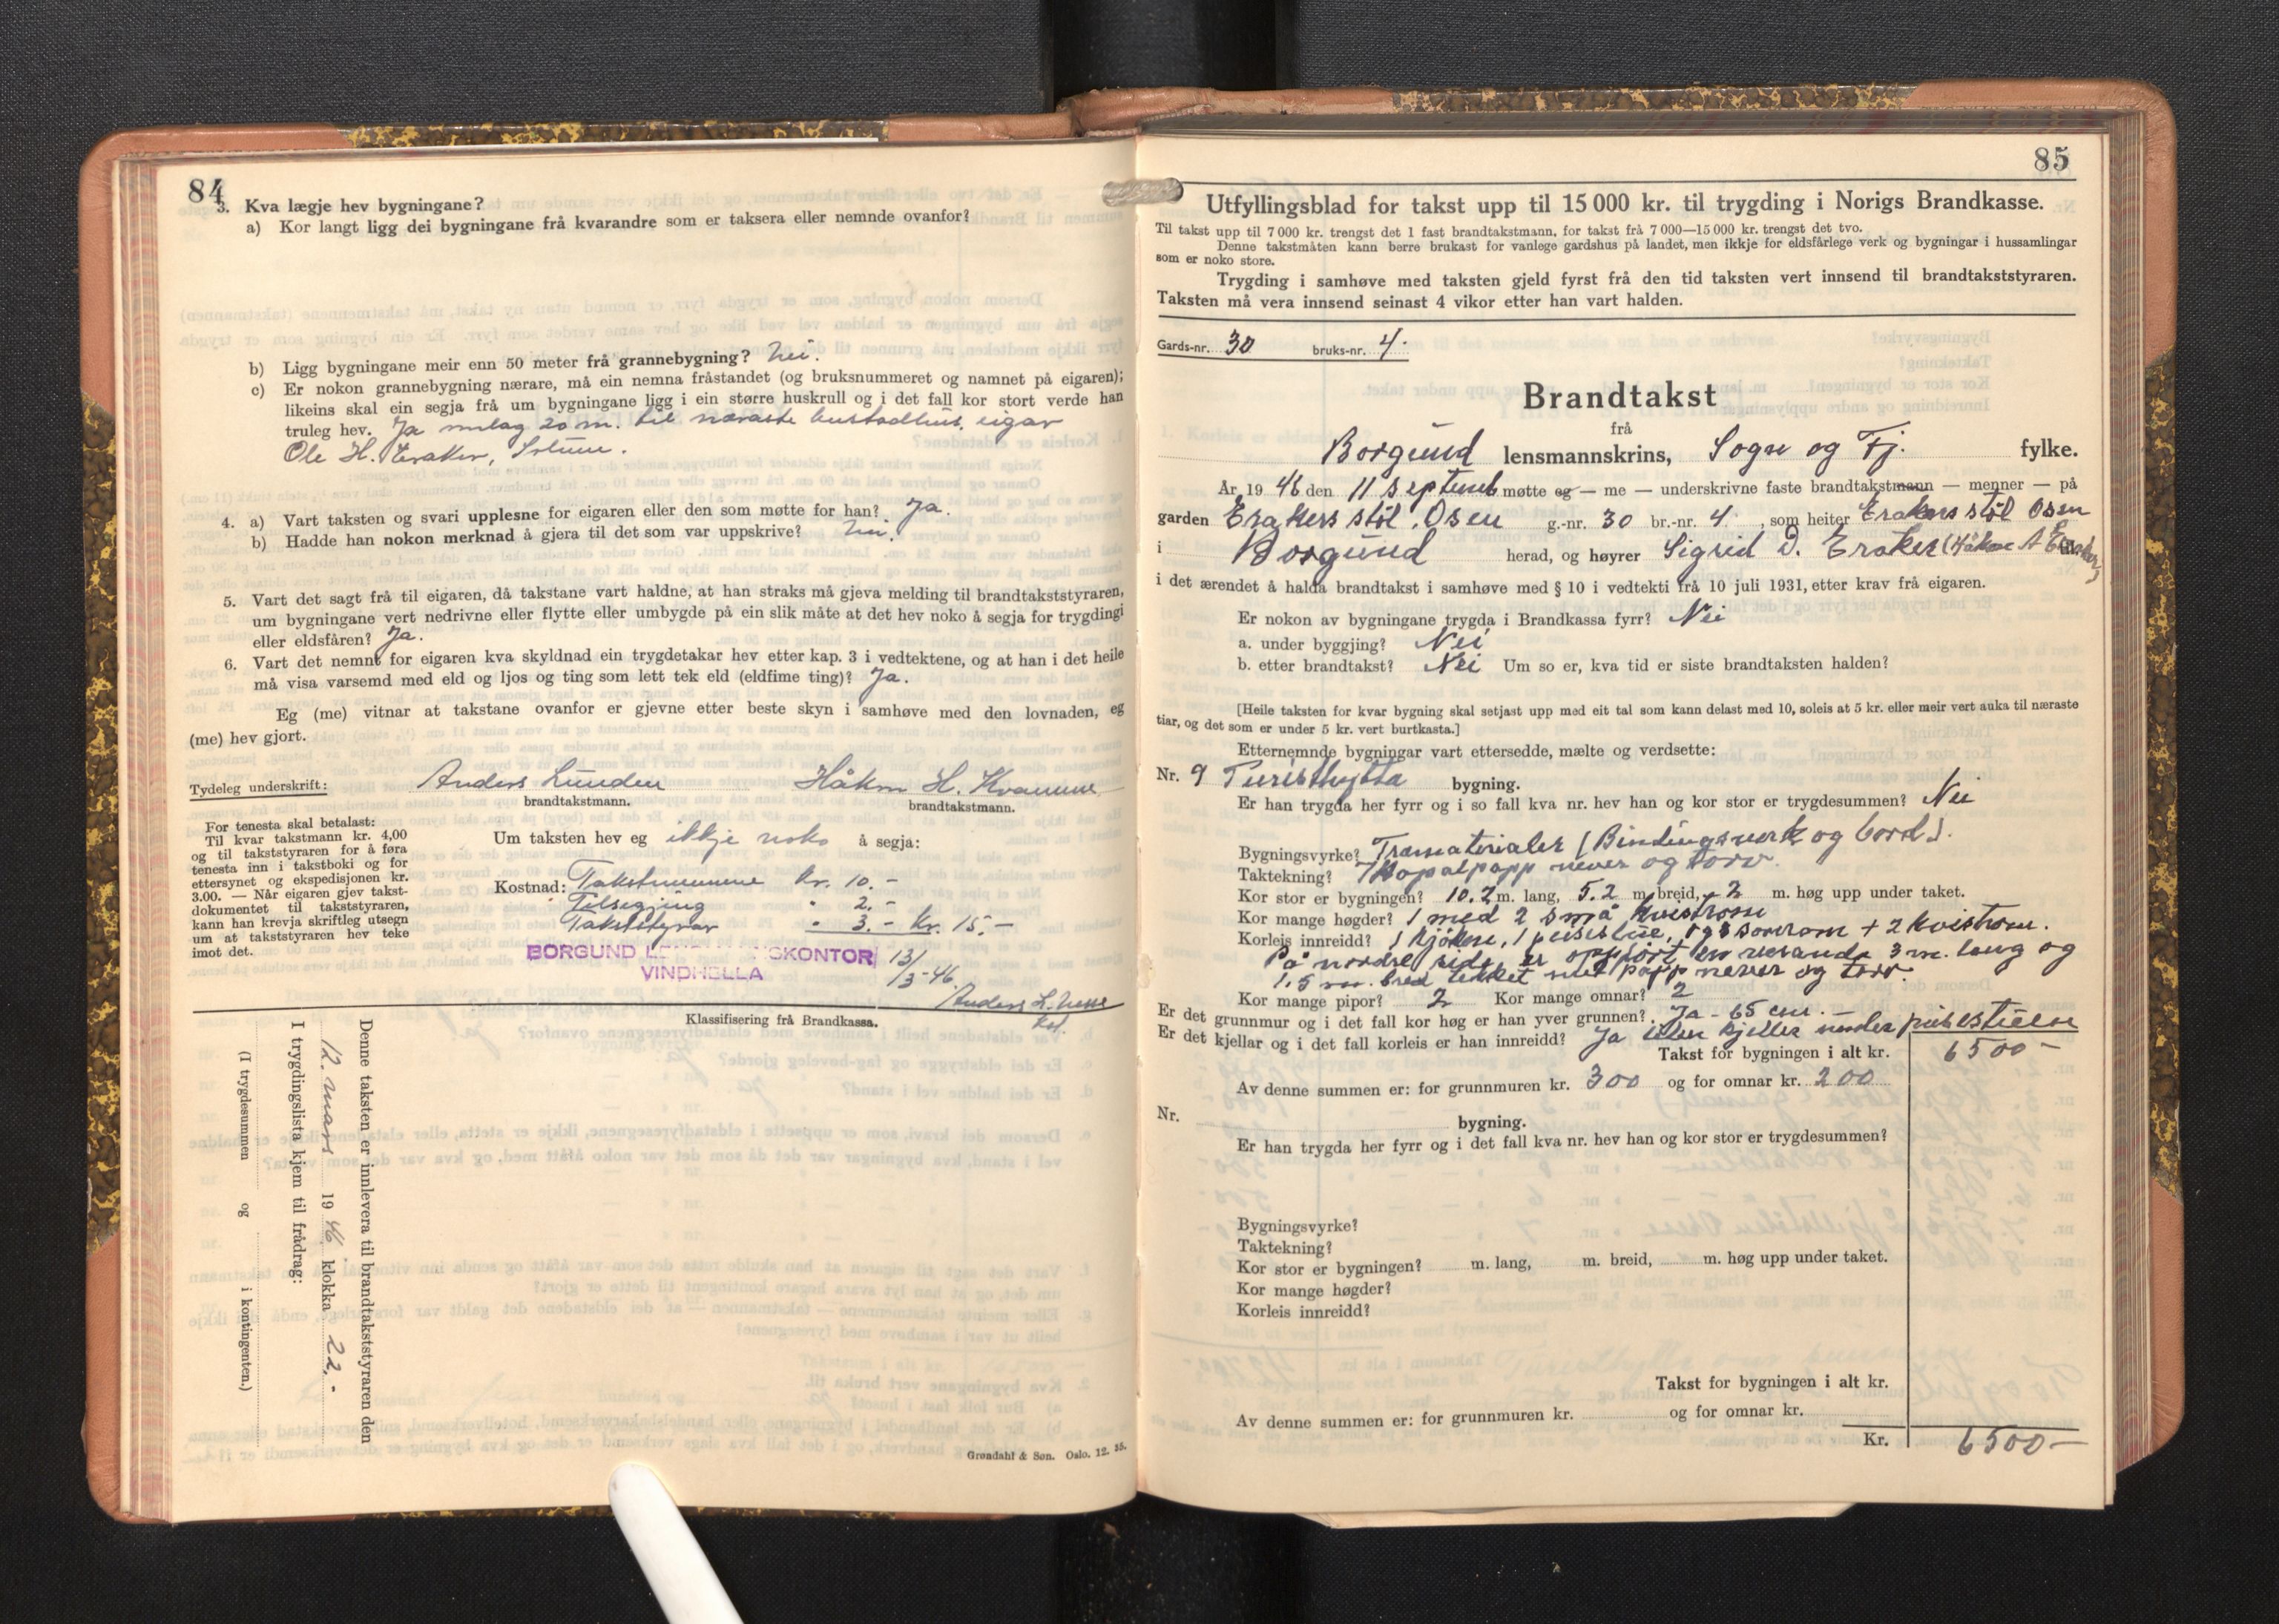 84
3. Kva lægje hev bygningane?
a) Kor langt ligg dei bygningane frå kvarandre som er taksera eller nemnde ovanfor?
b) Ligg bygningane meir enn 50 meter frå grannebygning? Nei.
c) Er nokon grannebygning nærare, må ein nemna fråstandet (og bruksnummeret og namnet på eigaren);
likeins skal ein segja frå um bygningane ligg i ein større huskrull og i det fall kor stort verde han
truleg hev. Ja umlag 20 m. til næraste bustadhus, eigar
Ole H. Eraker,
4. a) Vart taksten og svari upplesne for eigaren eller den som møtte for han? Ja.
b) Hadde han nokon merknad å gjera til det som var uppskrive? Nei.
5. Vart det sagt frå til eigaren, då takstane vart haldne, at han straks må gjeva melding til brandtakststyraren,
um bygningane vert nedrivne eller flytte eller umbygde på ein slik måte at det hev noko å segja for trygdingi
eller eldsfåren? Ja.
6. Vart det nemnt for eigaren kva skyldnad ein trygdetakar hev etter kap. 3 i vedtektene, og at han i det heile
må visa varsemd med eld og ljos og ting som lett tek eld (eldfime ting)? Ja.
Eg (me) vitnar at takstane ovanfor er gjevne etter beste skyn i samhøve med den lovnaden, eg
(me) hev gjort.
Tydeleg underskrift: Anders Lunden Håkon H. Kvamme
brandtakstmann. brandtakstmann.
For tenesta skal betalast:
Til kvar takstmann kr. 4,00
og til takststyraren for å føra
tenesta inn i takstboki og for
ettersynet og ekspedisjonen kr.
3.00. — Når eigaren gjev takst-
dokumentet til takststyraren,
kann han krevja skriftleg utsegn
um at takststyraren hev teke
imot det.
Um taksten hev eg ikkje noko å segja:
Kostnad: Takstmennene kr. 10.-
Tilsegjing " 2.-
Takststyrar " 3.- Kr. 15.-
BORGUND L SKONTOR 13/
VINDHELLA 3-46.
Anders L.
Klassifisering frå Brandkassa.
Denne taksten er innlevera til brandtakststyraren den
12. mars 1946 klokka 22.-
I trygdingslista kjem til frådrag:
(I trygdesummen og i kontingenten.)
Grøndahl & Søn. Oslo. 12. 35.
85
Utfyllingsblad for takst upp til 15 000 kr. til trygding i Norigs Brandkasse.
Til takst upp til 7 000 kr. trengst det 1 fast brandtakstmann, for takst frå 7 000—15 000 kr. trengst det tvo.
Denne takstmåten kann berre brukast for vanlege gardshus på landet, men ikkje for eldsfårlege verk og bygningar i hussamlingar
som er noko store.
Trygding i samhøve med taksten gjeld fyrst frå den tid taksten vert innsend til brandtakststyraren.
Taksten må vera innsend seinast 4 vikor etter han vart halden.
Gards-nr. 30 bruks-nr. 4.
Brandtakst
frå
Borgund lensmannskrins, Sogn og Fj. fylke.
År 1946 den 11 septemb møtte eg — me — underskrivne faste brandtakstmann — menner — på
garden Erakers støl, Osen g.-nr. 30 br.-nr. 4, som heiter Erakers støl Osen
i Borgund herad, og høyrer Sigrid D. Eraker (Håkon A Eraker) til
i det ærendet å halda brandtakst i samhøve med § 10 i vedtekti frå 10 juli 1931, etter krav frå eigaren.
Er nokon av bygningane trygda i Brandkassa fyrr? Nei
a. under byggjing? Nei
b. etter brandtakst? Nei Um so er, kva tid er siste brandtaksten halden?
[Heile taksten for kvar bygning skal setjast upp med eit tal som kann delast med 10, soleis at 5 kr. eller meir vert auka til næraste
tiar, og det som er under 5 kr. vert burtkasta.]
Etternemnde bygningar vart ettersedde, mælte og verdsette:
Nr. 9 Turisthytta bygning.
Er han trygda her fyrr og i so fall kva nr. hev han og kor stor er trygdesummen? Nei
Bygningsvyrke? Træmaterialer (Bindingsverk og bord).
Taktekning? papp never og torv.
Kor stor er bygningen? 10.2 m. lang, 5.2 m. breid, 2 m. høg upp under taket.
Kor mange høgder? 1 med 2 små kvistrom
Korleis innreidd? 1 kjøken, 1 peisestue, og 3 soverom + 2 kvistrom.
På nordre side er oppført en veranda 3 m. lang og
1,5 m. bred tekket med papp never og torv.
Kor mange pipor? 2 Kor mange omnar? 2
Er det grunnmur og i det fall kor høg er han yver grunnen? Ja - 65 cm. -
Er det kjellar og i det fall korleis er han innreidd? Ja liten kjeller under peisestuen
Takst for bygningen i alt kr. 6500-
Av denne summen er: for grunnmuren kr. 300 og for omnar kr. 200
Nr. bygning.
Er han trygda her fyrr og i det fall kva nr. hev han og kor stor er trygdesummen?
Bygningsvyrke?
Taktekning?
Kor stor er bygningen? m. lang, m. breid, m. høg upp under taket.
Kor mange høgder?
Korleis innreidd?
Takst for bygningen i alt kr.
Av denne summen er: for grunnmuren kr. og for omnar kr.
Kr. 6500-